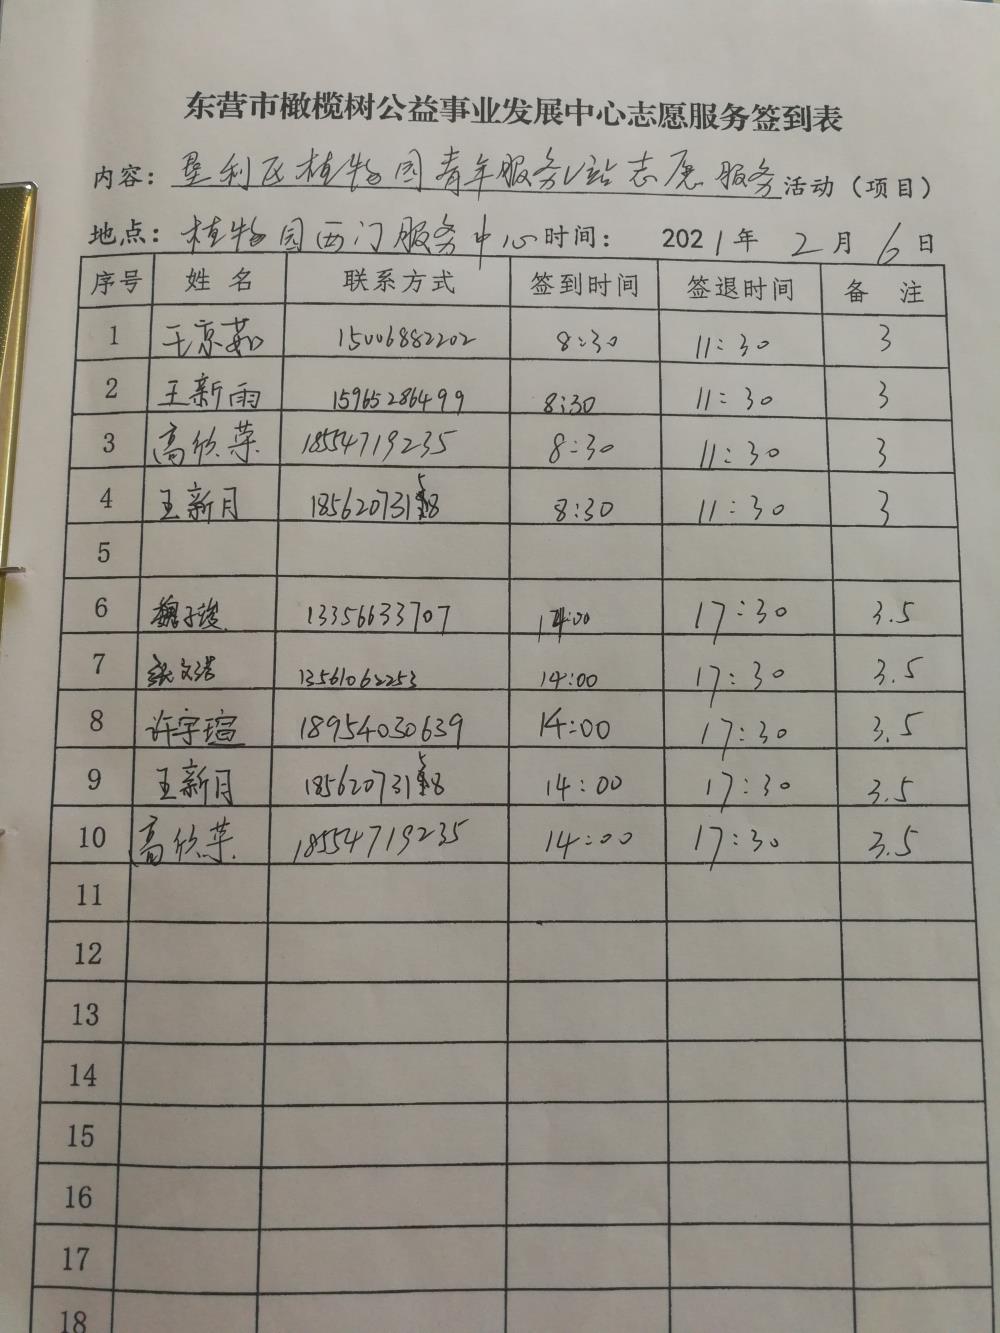 东营市橄榄树公益事业发展中心志愿服务签到表
内容：垦利区植物园青年服务V站志愿服务活动（项目）
地点：植物园西门服务中心时间：2021年2月6日
序号 姓名 联系方式 签到时间 签退时间 备注
1 王京茹 15006882202 8:30 11:30 3
2 王新雨 15965286499 8:30 11:30 3
3 高欣荣 18554719235 8:30 11:30 3
4 王新月 18562073158 8:30 11:30 3
5
6 魏子竣 13356633707 14:00 17:30 3.5
7 张文浩 13561062253 14:00 17:30 3.5
8 许宇瑄 18954030639 14:00 17:30 3.5
9 王新月 18562073158 14:00 17:30 3.5
10 高欣荣 18554719235 14:00 17:30 3.5
11
12
13
14
15
16
17
18